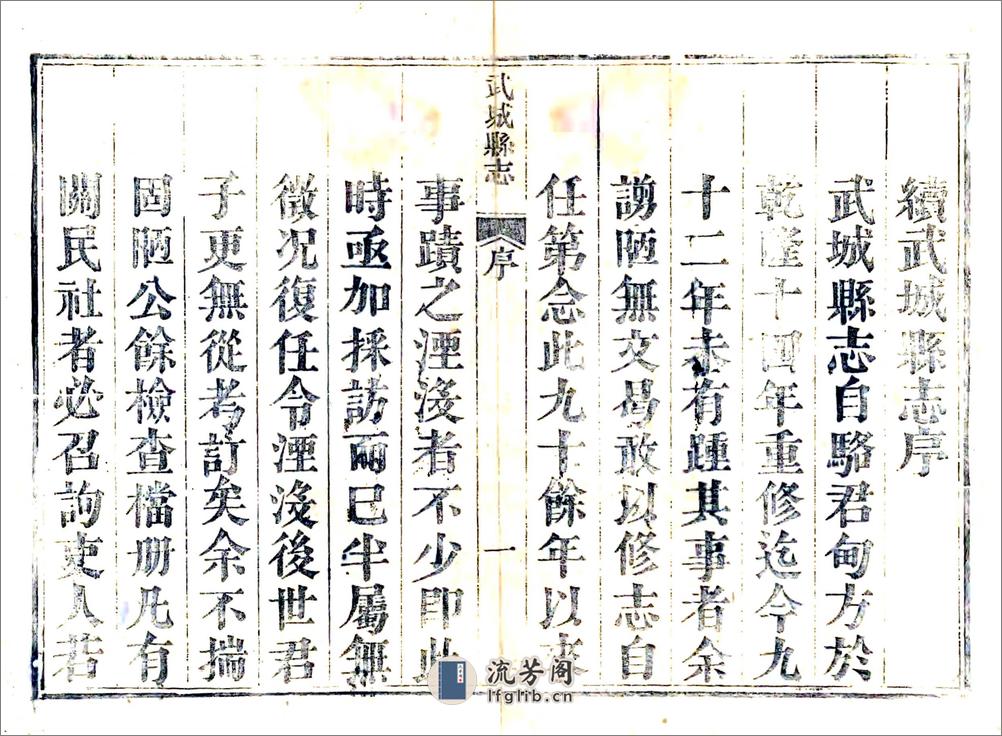 續武城縣志序
武城縣志自駱君甸方於
乾隆十四年重修迄今九
十二年未有踵其事者余
謭陋無文曷敢以修志自
任第念此九十餘年以來
武城縣志
序
一
事蹟之湮沒者不少即此
時亟加採訪而已半屬無
徵况復任令湮沒後世君
子更無從考訂矣余不揣
固陋公餘檢查檔册凡有
關民社者必召詢吏人若
流芳阁
lfglib.cn